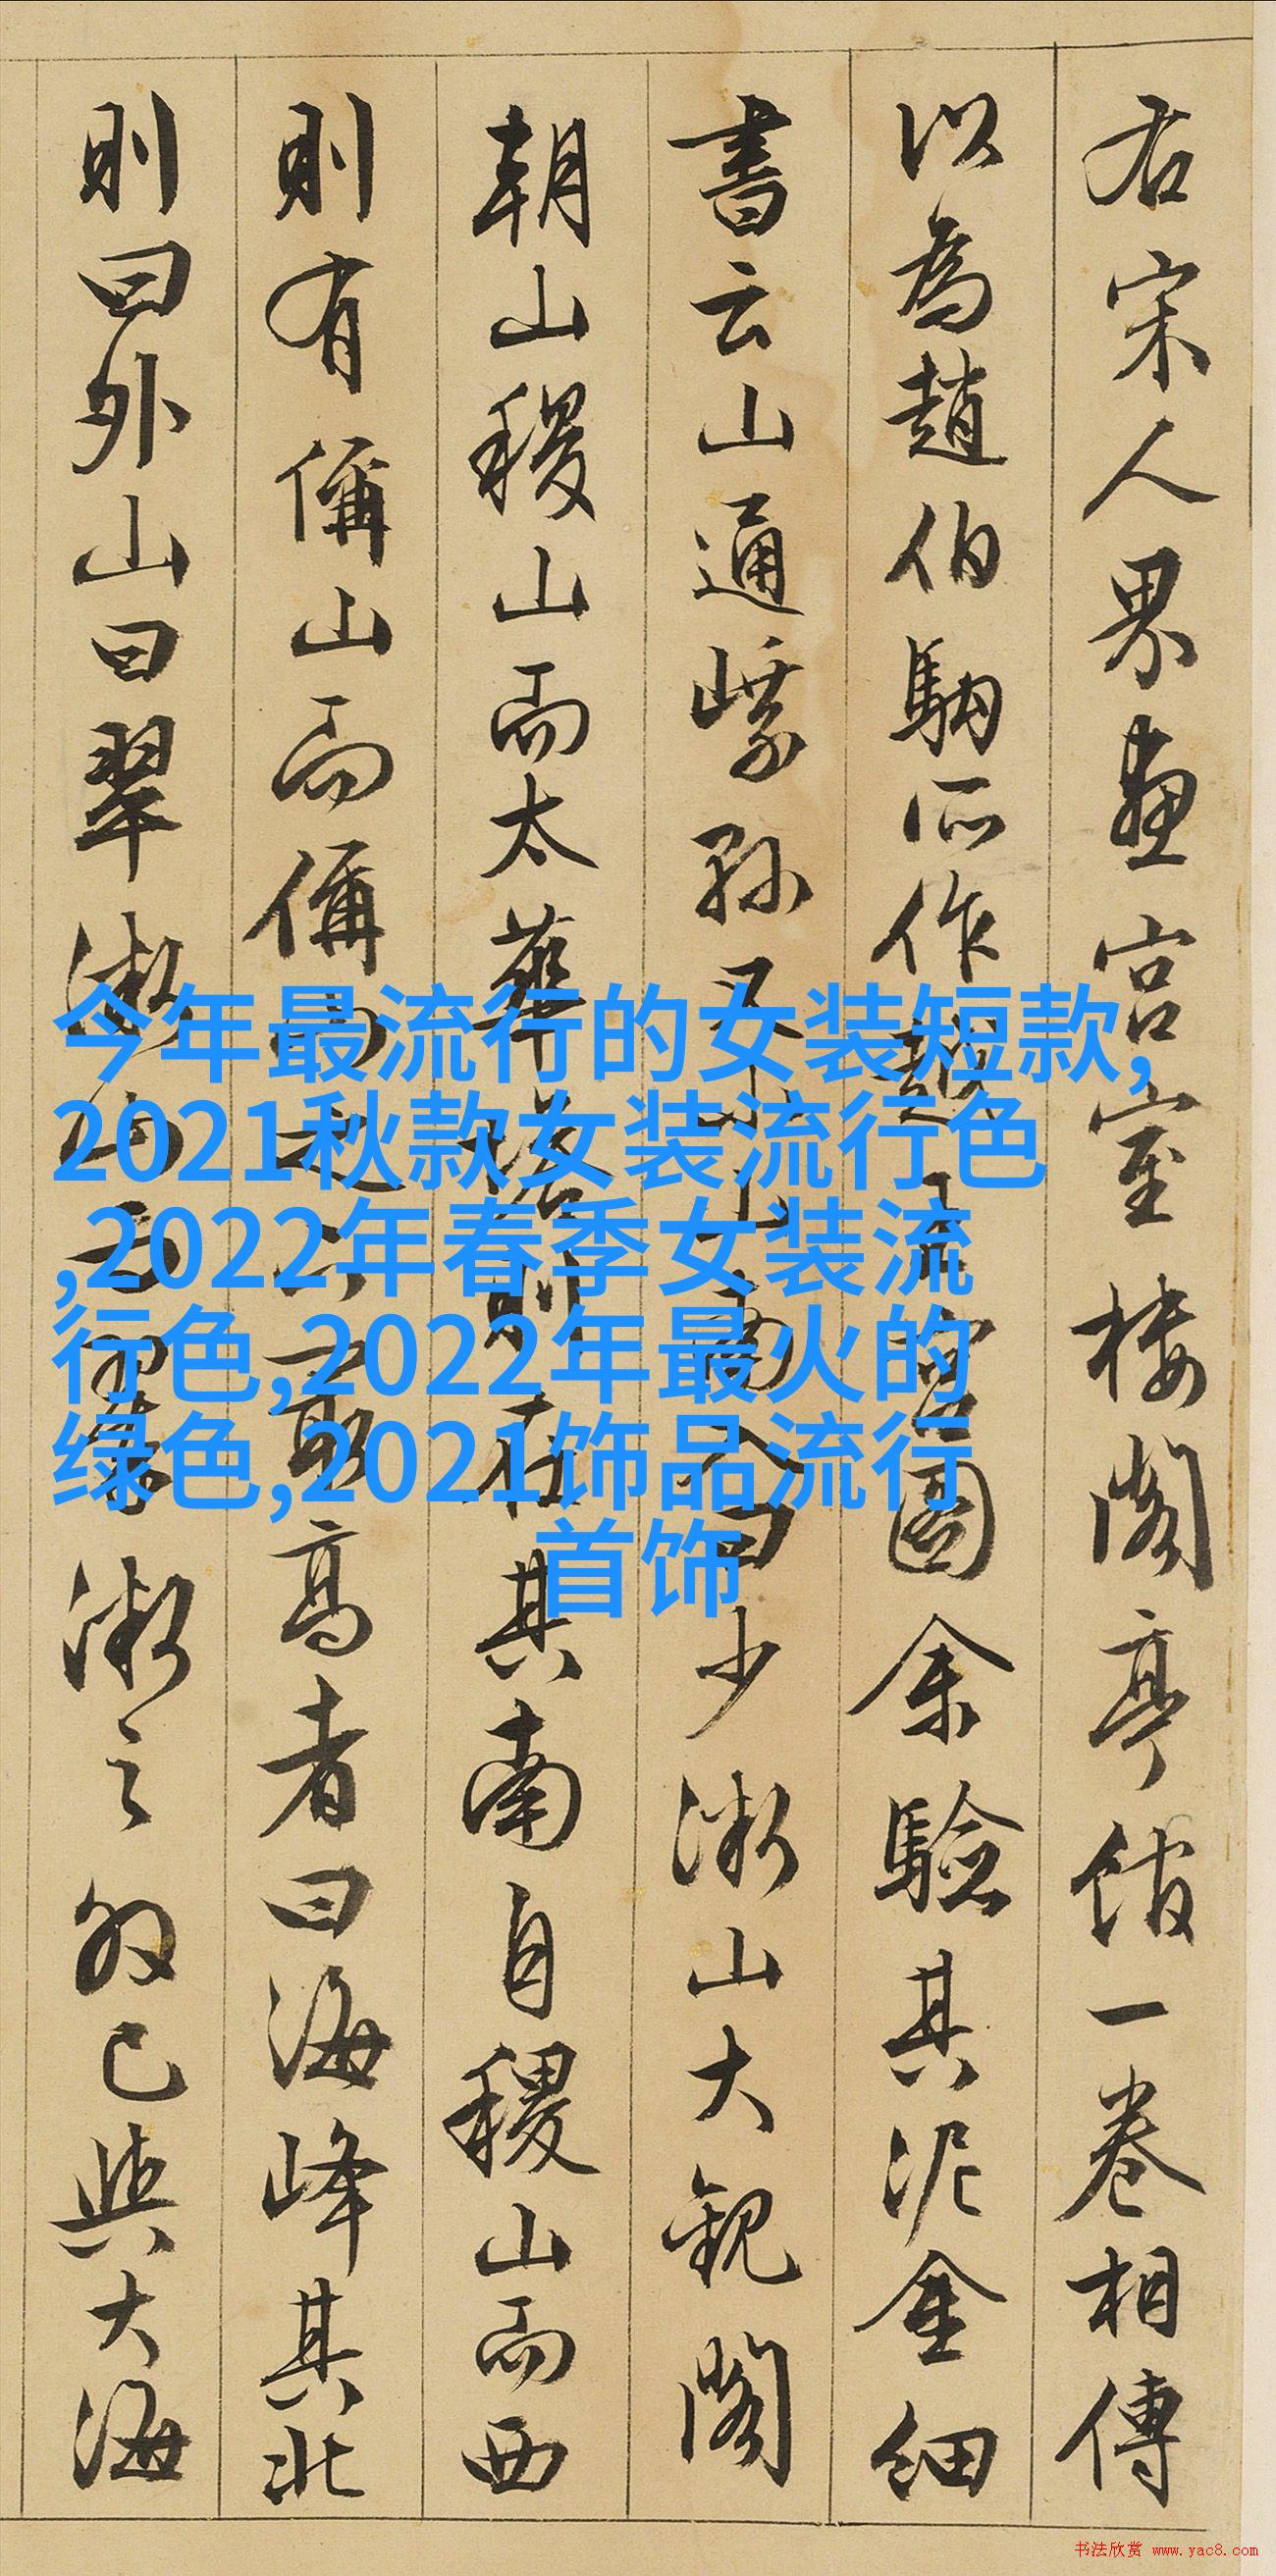 右宋人界畫宫室樓閣亭館一卷相傳
以為趙伯駒所作越王宫圖余驗其泥金細
書云山通山南曰少山大觀閣
朝山稷山而太華塔則在其南自稷山而西
則有偁山而偁最高者曰海峰其北
則曰外山曰翠之外已與大海
今年最流行的女装短款,
2021秋款女装流行色
,2022年春季女装流
行色,2022年最火的
绿色,2021饰品流行
首饰
书法欣赏 www.yac8.com